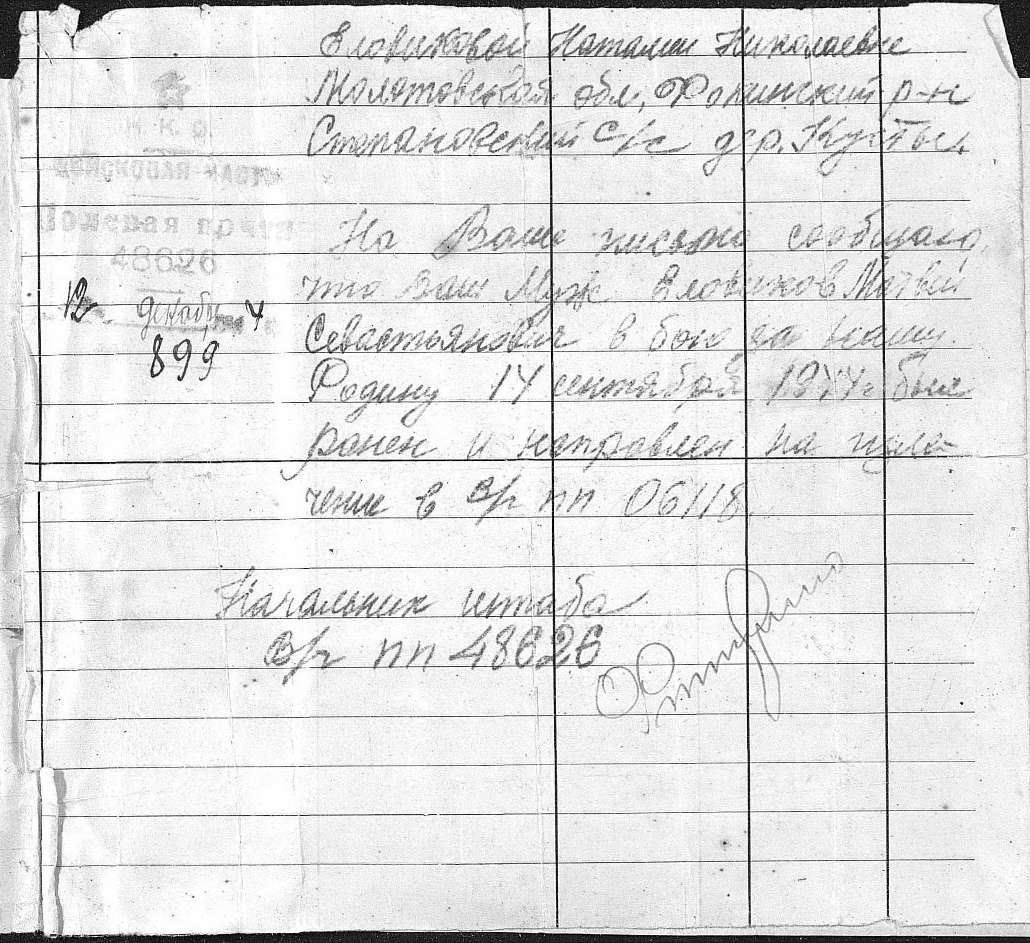 Еловиковой Наталии Николаевне
Молотовская обл, Фокинский р-н
Степановский с/с дер. Кусты.
Н. К. О.
ВОЙСКОВАЯ ЧАСТЬ
Полевая почта
48626
12 декабр 4
899
На Ваше письмо сообщаю,
что ваш Муж Еловиков Матвей
Севастьянович в бою за нашу
Родину 14 сентября 1944г. был
ранен и направлен на
чение в в/ч пп 06118.
Начальник штаба
в/ч пп 48626